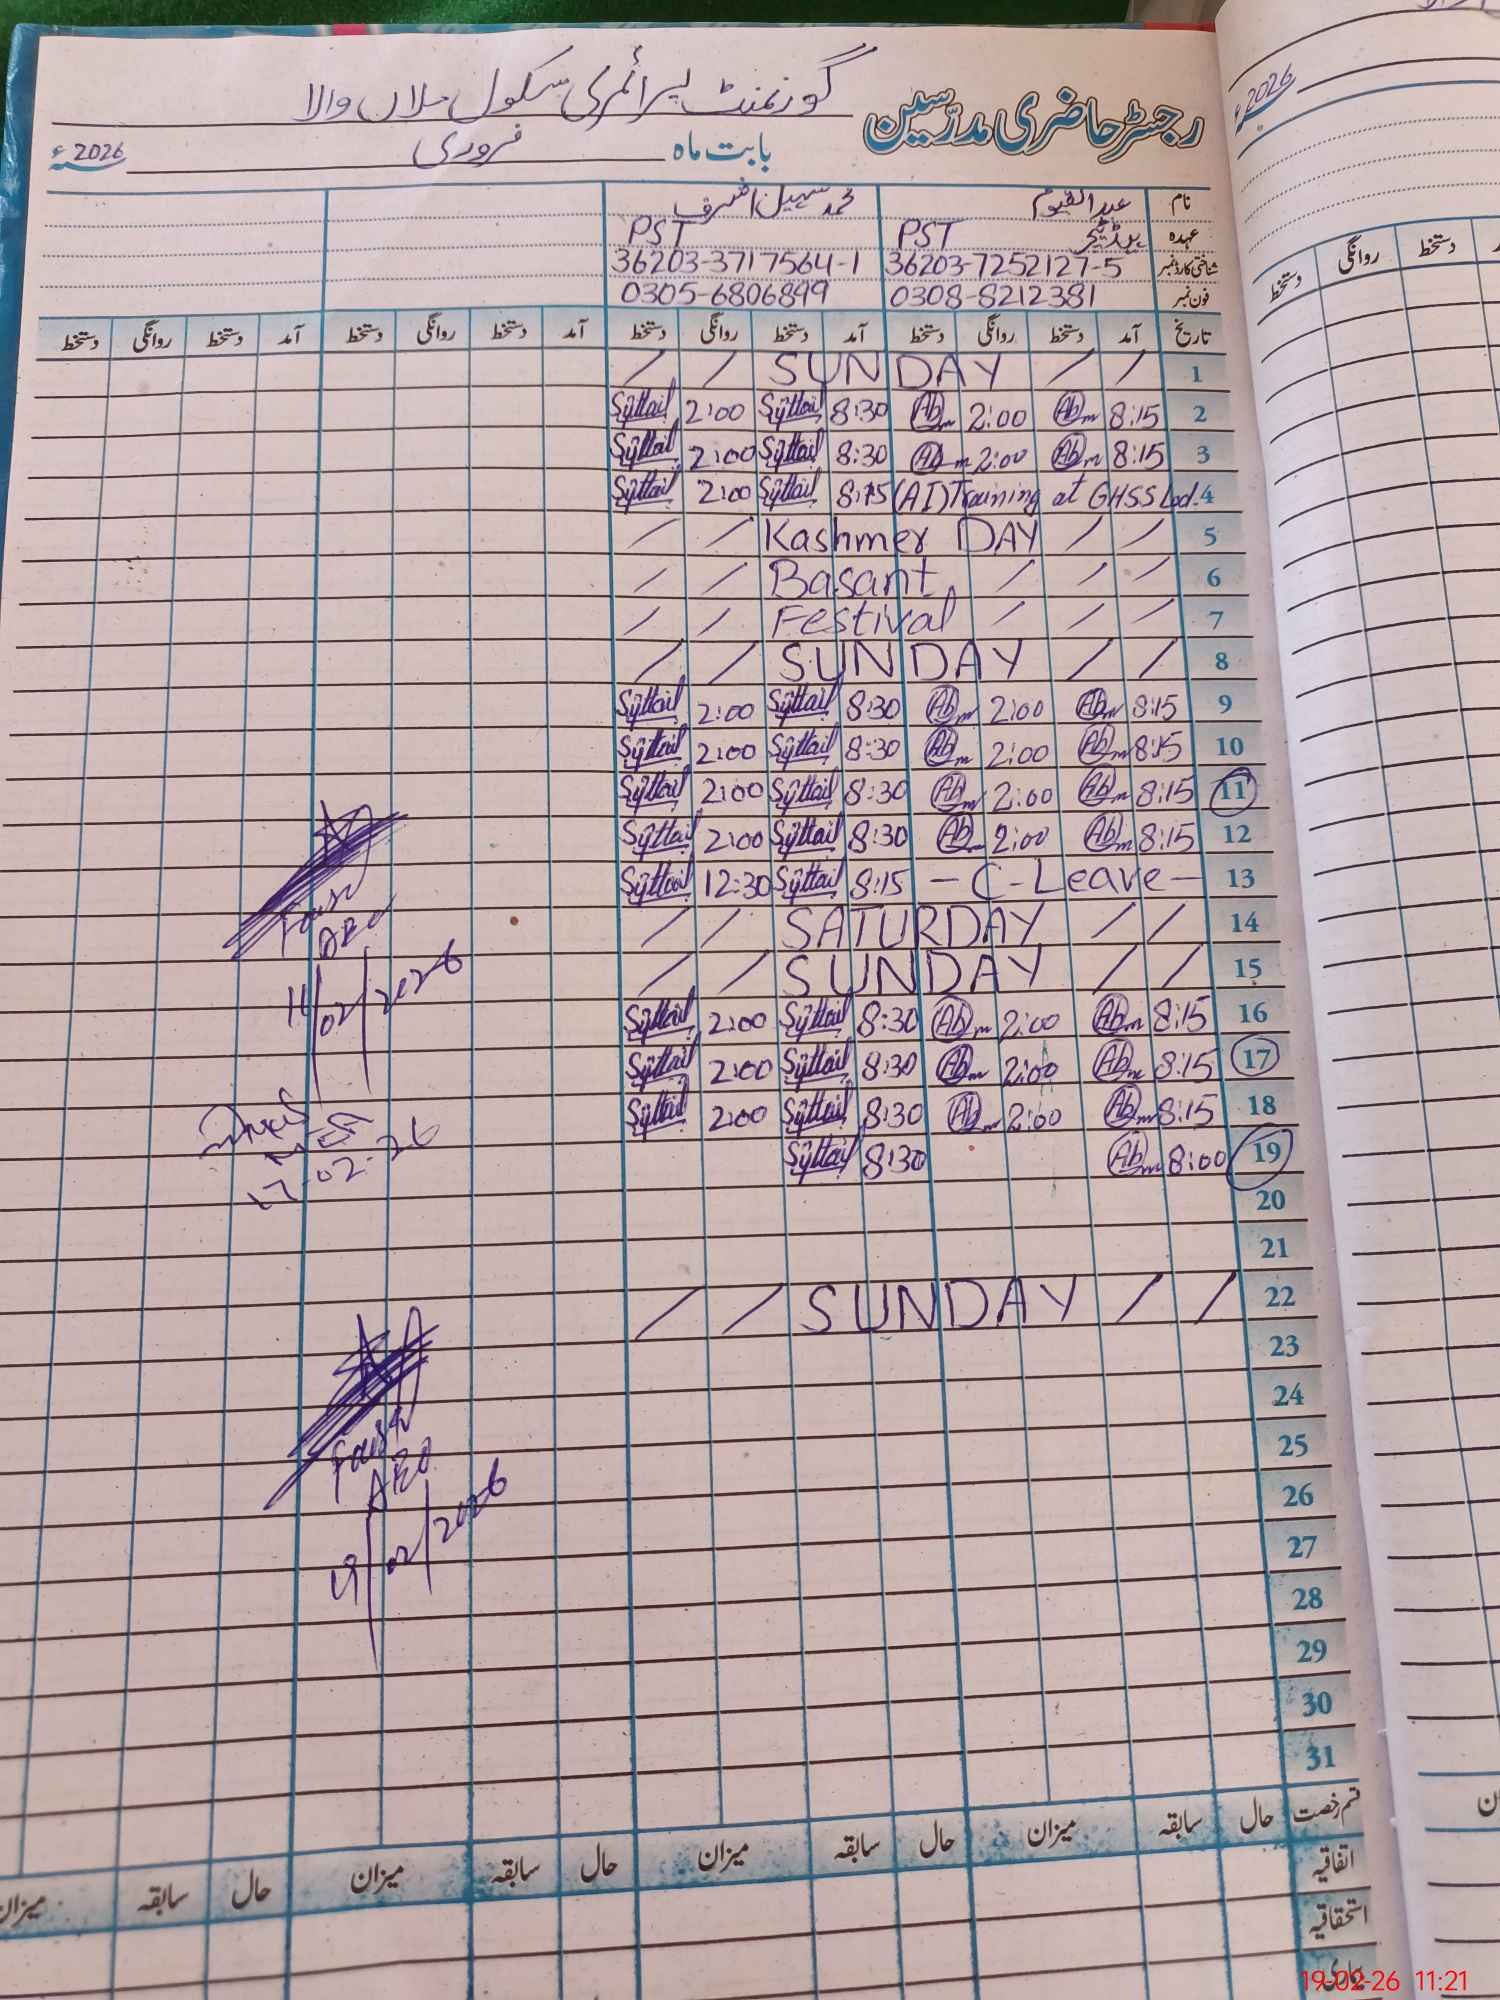 گورنمنٹ پرائمری سکول ملاں والا
رجسٹر حاضری مدرسین
بابت ماہ فروری 2026ء
نام عبدالقیوم محمد سہیل اشرف
عہدہ ہیڈٹیچر PST PST
شناختی کارڈ نمبر 36203-7252127-5 36203-3717564-1
فون نمبر 0308-8212381 0305-6806899
تاریخ آمد دستخط روانگی دستخط آمد دستخط روانگی دستخط آمد دستخط روانگی دستخط آمد دستخط روانگی دستخط
1 / / SUNDAY / /
2 8:15 Abm 2:00 Abm 8:30 Syttail 2:00 Syttail
3 8:15 Abm 2:00 Abm 8:30 Syttail 2:00 Syttail
4 (AI) Training at GHSS Lod. 8:15 Syttail 2:00 Syttail
5 / / Kashmer DAY / /
6 / / Basant / / /
7 / / Festival / / /
8 / / SUNDAY / /
9 8:15 Abm 2:00 Abm 8:30 Syttail 2:00 Syttail
10 8:15 Abm 2:00 Abm 8:30 Syttail 2:00 Syttail
11 8:15 Abm 2:00 Abm 8:30 Syttail 2:00 Syttail
12 8:15 Abm 2:00 Abm 8:30 Syttail 2:00 Syttail
13 - C - Leave - 8:15 Syttail 12:30 Syttail
14 / / SATURDAY / /
15 / / SUNDAY / /
16 8:15 Abm 2:00 Abm 8:30 Syttail 2:00 Syttail
17 8:15 Abm 2:00 Abm 8:30 Syttail 2:00 Syttail
18 8:15 Abm 2:00 Abm 8:30 Syttail 2:00 Syttail
19 8:00 Abm 8:30 Syttail
20
21
22 / / SUNDAY / /
23
24
25
26
27
28
29
30
31
AEO
11/02/2026
17-02-26
AEO
19/02/2026
قسم رخصت حال سابقہ میزان حال سابقہ میزان حال سابقہ میزان حال سابقہ میزان
اتفاقیہ
استحقاقیہ
بیماری
2026ء
دستخط روانگی دستخط
19-02-26 11:21